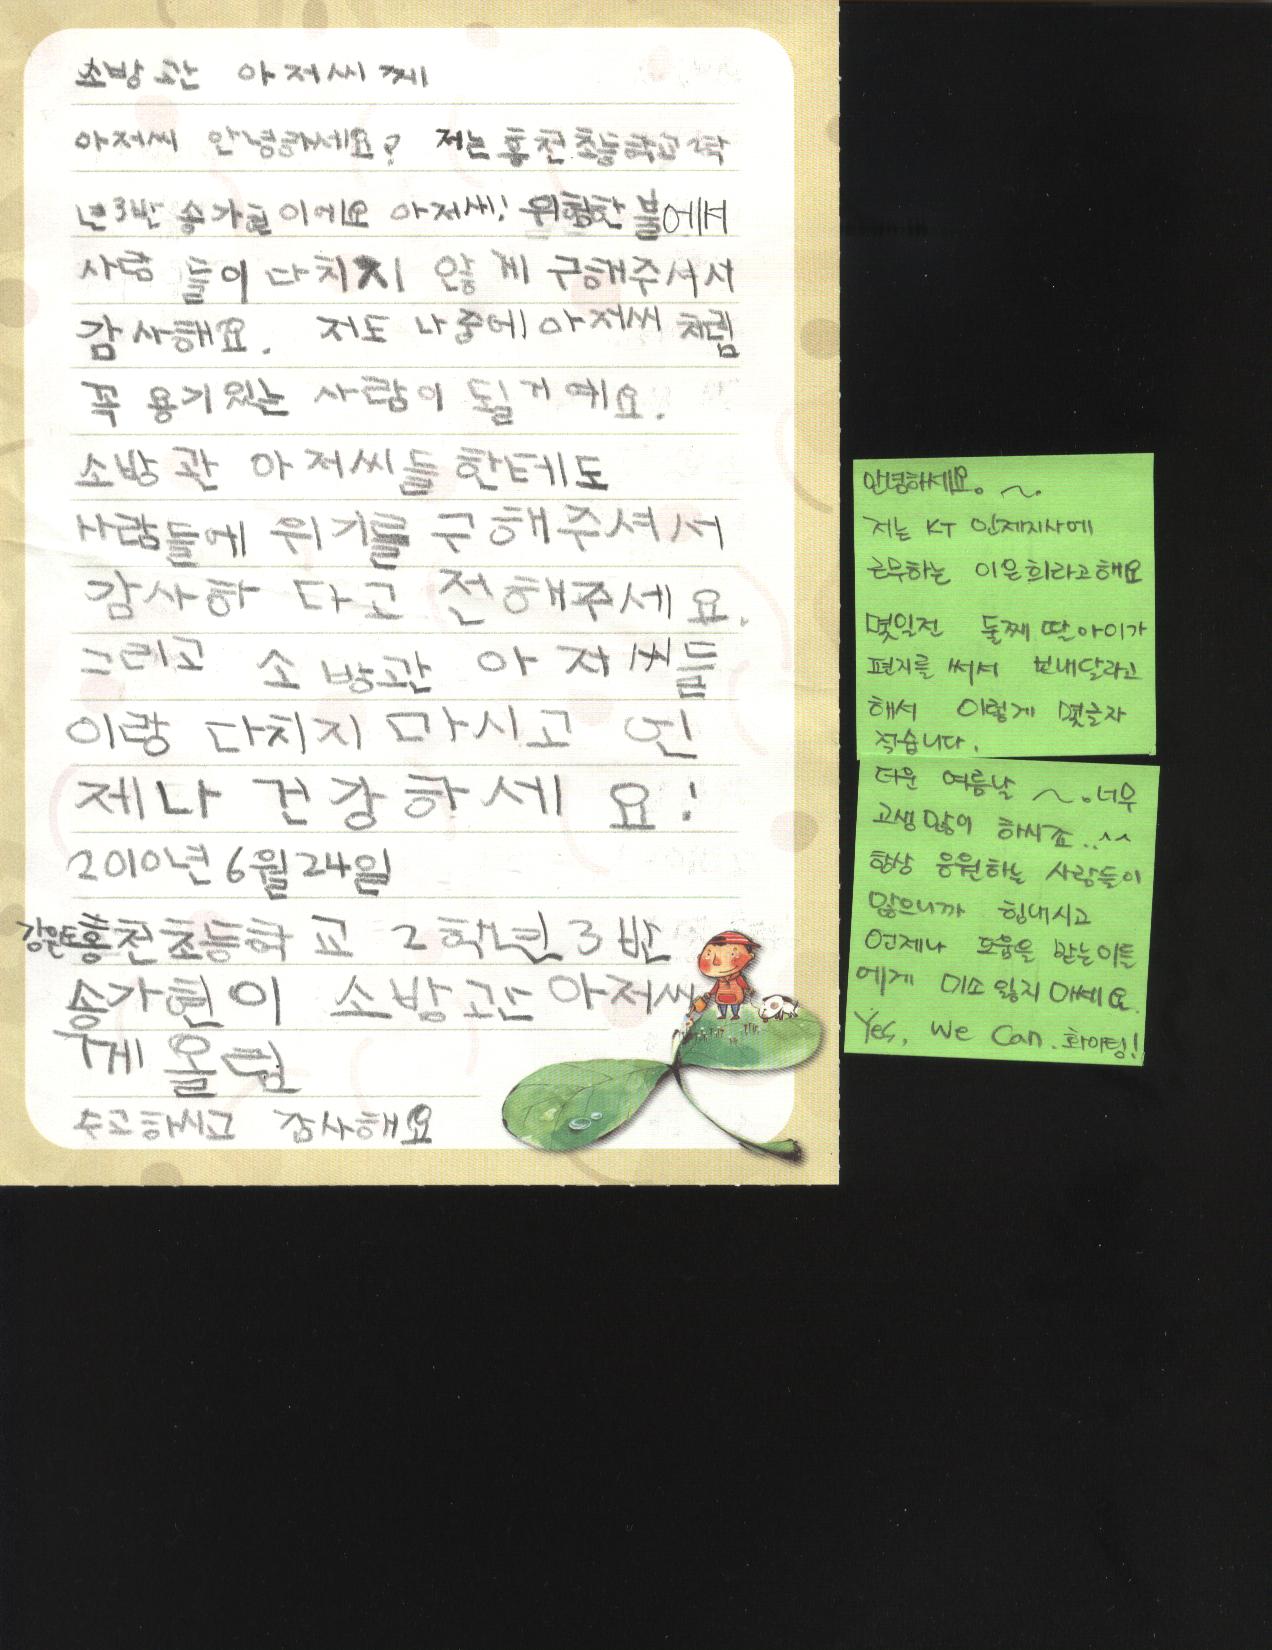 소방관 아저씨께
아저씨 안녕하세요? 저는 홍천초등학교 2학
년 3반 송가현이에요 아저씨! 위험한 불에서
사람들이 다치지 않게 구해주셔서
감사해요. 저도 나중에 아저씨 처럼
꼭 용기있는 사람이 될거예요.
소방관 아저씨들한테도
사람들에 위기를 구해주셔서
감사하다고 전해주세요.
그리고 소방관 아저씨들
이랑 다치지 마시고 언
제나 건강하세요!
2010년 6월 24일
강원도홍천초등학교 2학년 3반
송가현이 소방관 아저씨
께 올림
수고하시고 감사해요
안녕하세요. ~.
저는 KT 인제지사에
근무하는 이은희라고해요
몇일전 둘째 딸아이가
편지를 써서 보내달라고
해서 이렇게 몇글자
적습니다.
더운 여름날 ~. 너무
고생많이 하시죠..^^
항상 응원하는 사람들이
많으니까 힘내시고
언제나 도움을 받는이들
에게 미소 잃지 마세요.
Yes, We Can. 화이팅!